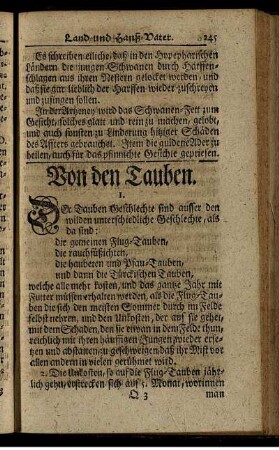 Land-und Hauß-Vater. 245
Es schreiben etliche, daß in den Hyperborischen
Ländern die jungen Schwanen durch Harffen-
schlagen aus ihren Nestern gelocket werden, und
daß sie gar lieblich der Harffen wieder zuschreyen
und zusingen sollen.
In der Artzney wird das Schwanen-Fett zum
Gesichte, solches glatt und rein zu machen, gelobt,
und auch sonsten zu Linderung hitziger Schäden
des Afters gebrauchet. Item die güldene Ader zu
heilen, auch für das pfinnichte Gesichte gepriesen.
Von den Tauben.
1.
DEr Tauben Geschlechte sind ausser den
wilden unterschiedliche Geschlechte, als
da sind:
die gemeinen Flug-Tauben,
die rauchfüßichten,
die hauberen und Pfau-Tauben,
und dann die Türckischen Tauben,
welche alle mehr kosten, und das gantze Jahr mit
Futter müssen erhalten werden, als die Flug-Tau-
ben die sich den meisten Sommer durch im Felde
selbst nehren, und den Unkosten, der auf sie gehet,
mit dem Schaden, den sie etwan in dem Felde thun,
reichlich mit ihren häuffigen Jungen wieder erse-
tzen und abstatten, zu geschweigen daß ihr Mist vor
allen andern in vielen gerühmet wird.
2. Die Unkosten, so auf die Flug-Tauben jähr-
lich gehn, erstrecken sich auf 5. Monat, worinnen
Q 3 man